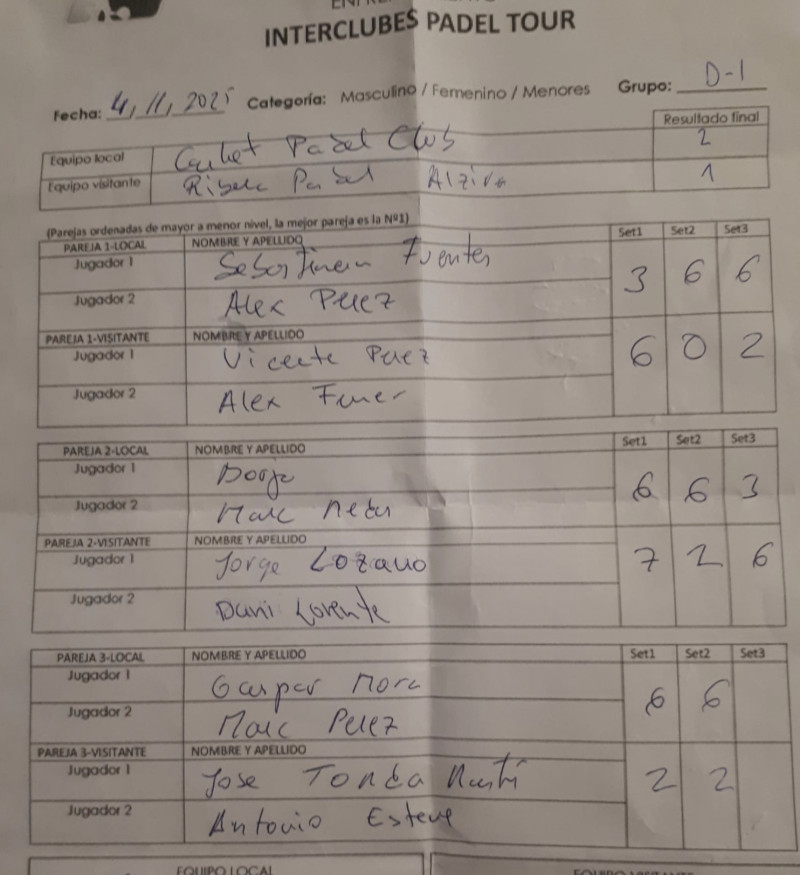 INTERCLUBES PADEL TOUR
Fecha: 4, 11, 2025 Categoría: Masculino / Femenino / Menores Grupo: D-1
Resultado final
Equipo local Padel Club 2
Equipo visitante Ribera Padel Alzira 1
(Parejas ordenadas de mayor a menor nivel, la mejor pareja es la Nº1)
PAREJA 1-LOCAL NOMBRE Y APELLIDO Set1 Set2 Set3
Jugador 1 Sebastinan Fuentes 3 6 6
Jugador 2 Alex Perez
PAREJA 1-VISITANTE NOMBRE Y APELLIDO
Jugador 1 Vicente Perez 6 0 2
Jugador 2 Alex
PAREJA 2-LOCAL NOMBRE Y APELLIDO Set1 Set2 Set3
Jugador 1 Borja 6 6 3
Jugador 2 Marc
PAREJA 2-VISITANTE NOMBRE Y APELLIDO
Jugador 1 Jorge Lozano 7 2 6
Jugador 2 Dani Lorente
PAREJA 3-LOCAL NOMBRE Y APELLIDO Set1 Set2 Set3
Jugador 1 Gaspar Mora 6 6
Jugador 2 Marc Perez
PAREJA 3-VISITANTE NOMBRE Y APELLIDO
Jugador 1 Jose Tonda Martí 2 2
Jugador 2 Antonio Esteve
EQUIPO LOCAL EQUIPO VISITANTE